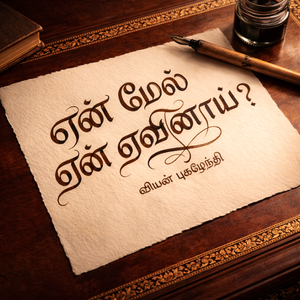 ஏன் மேல்
ஏன் ஏவினாய்?
வியன் புகழேந்தி